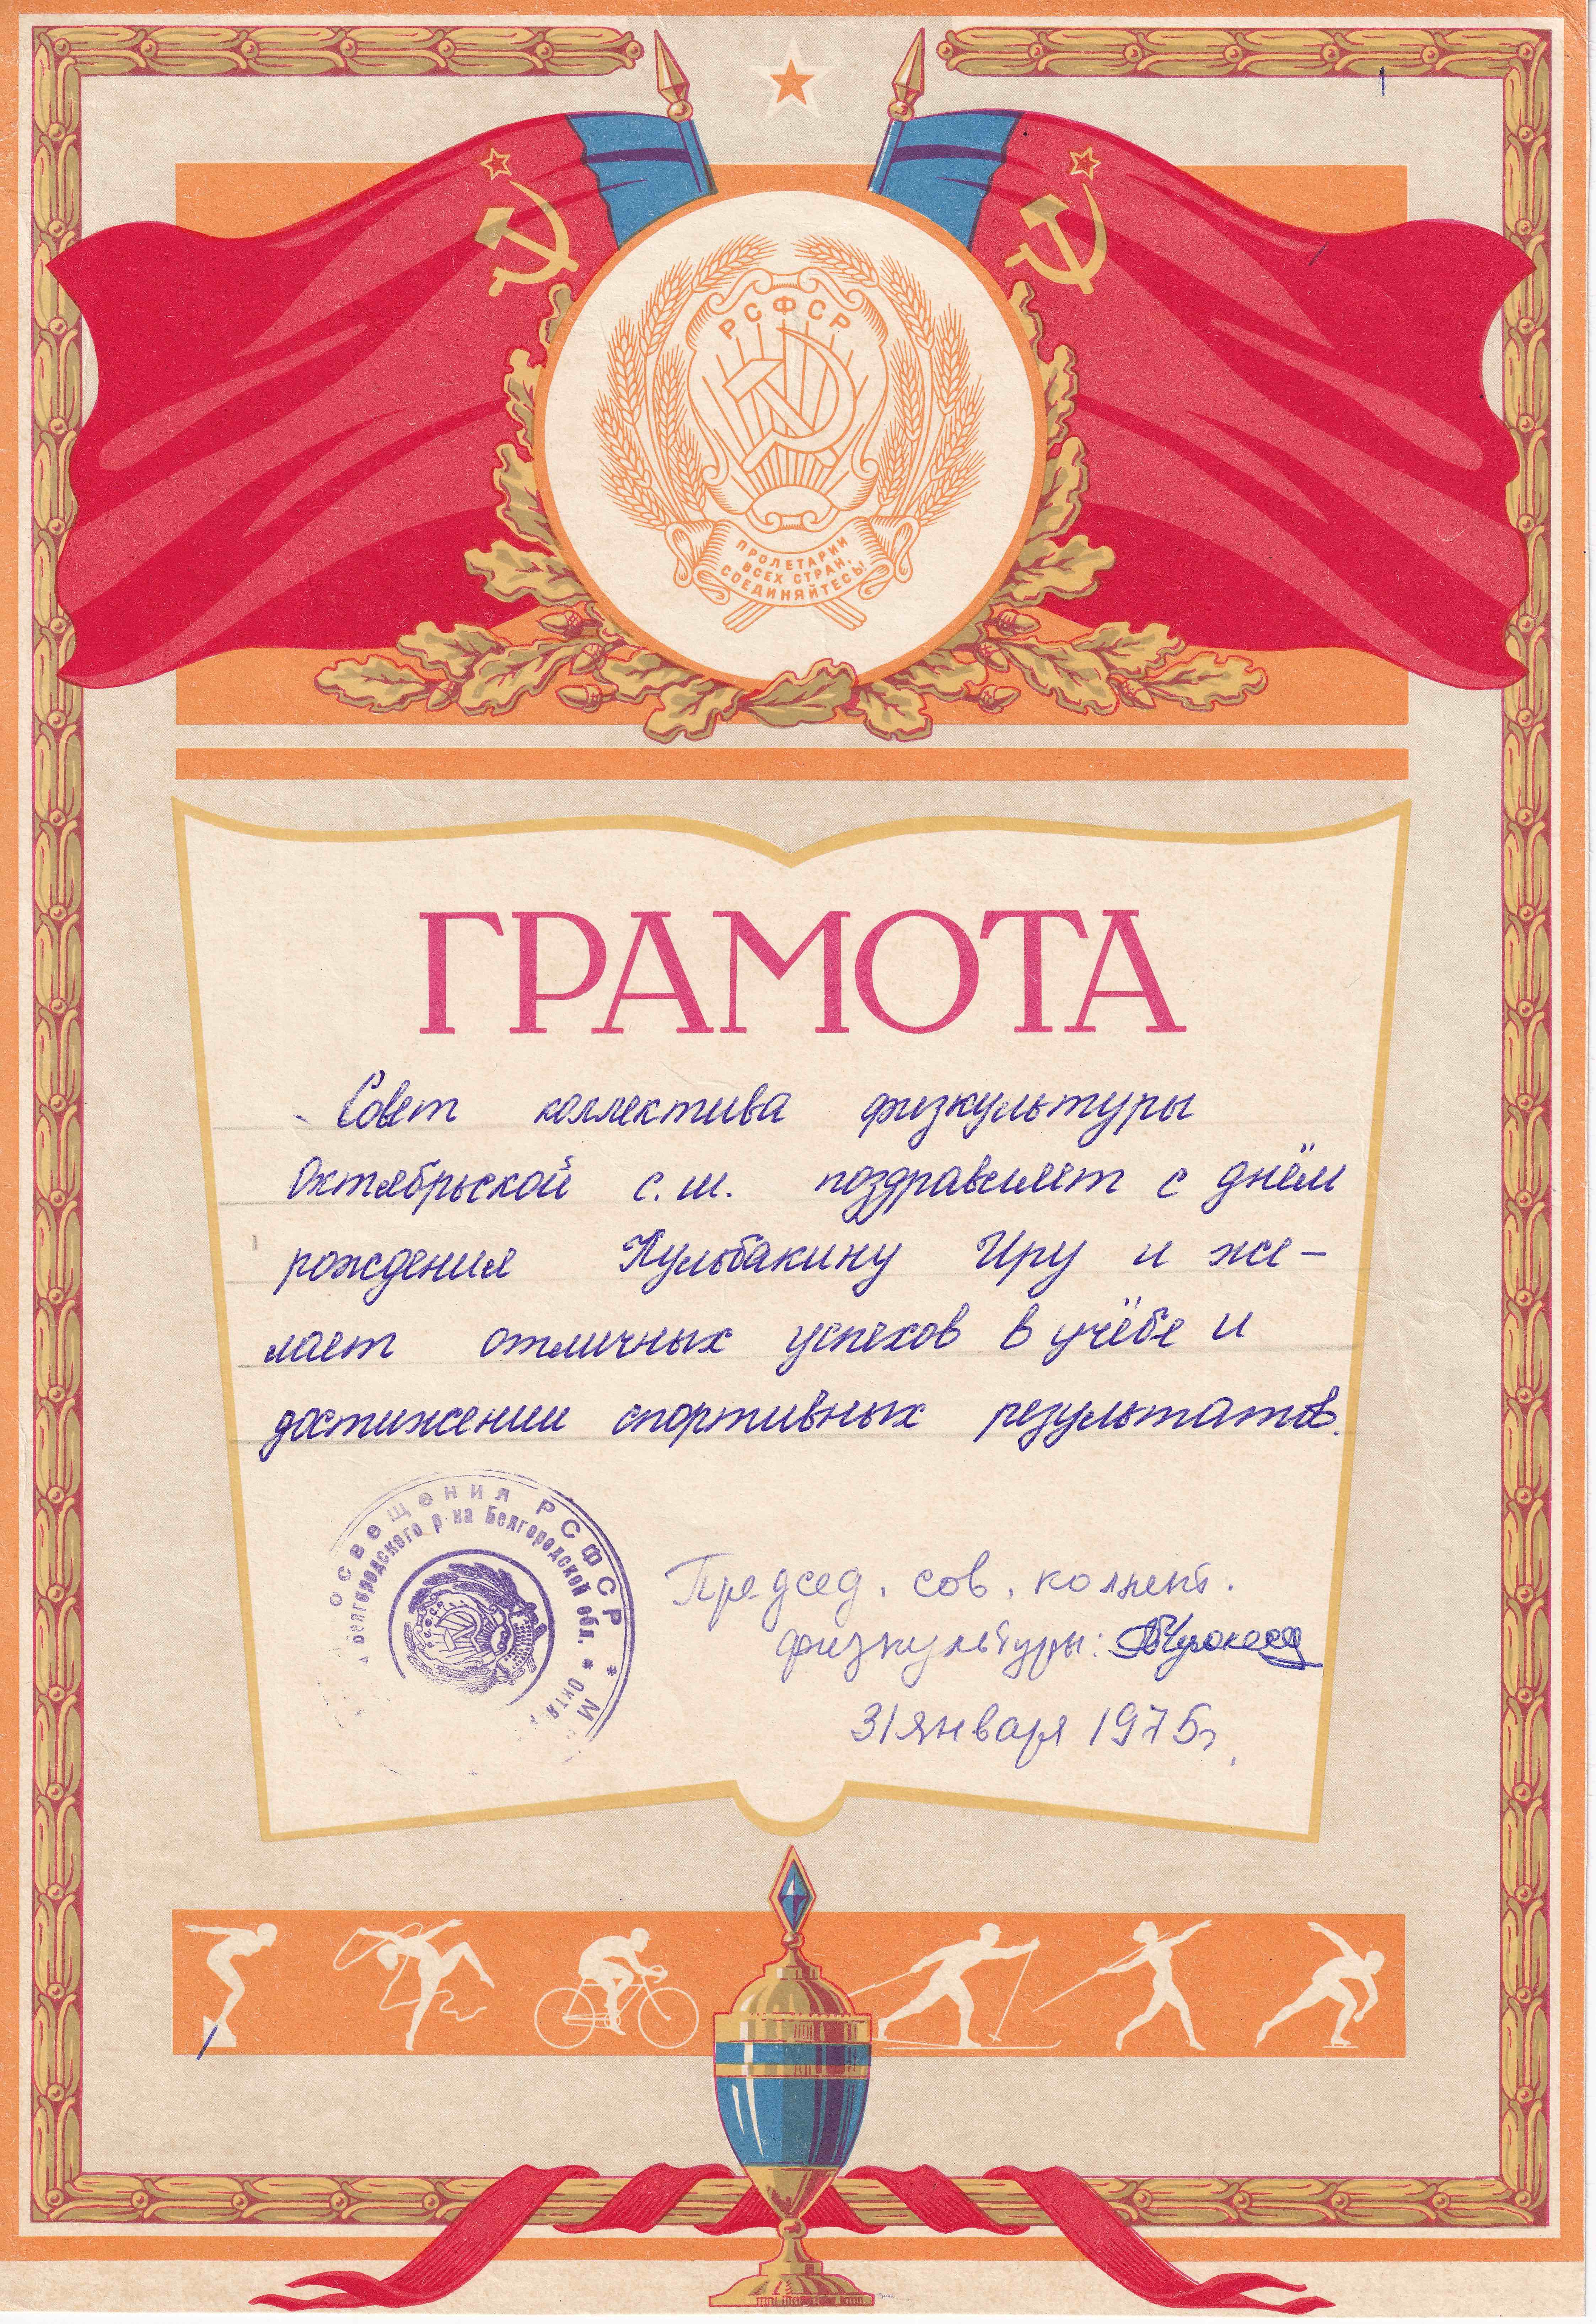 РСФСР
ПРОЛЕТАРИИ
ВСЕХ СТРАН,
СОЕДИНЯЙТЕСЬ!
ГРАМОТА
Совет коллектива физкультуры
Октябрьской с. ш. поздравляет с днём
рождения Кульбакину Иру и же-
лает отличных успехов в учёбе и
достижении спортивных результатов.
освещения РСФСР * М
Белгородского р-на Белгородской обл. *
РСФСР
Председ. сов. коллект.
физкультуры:
31 января 1975г.